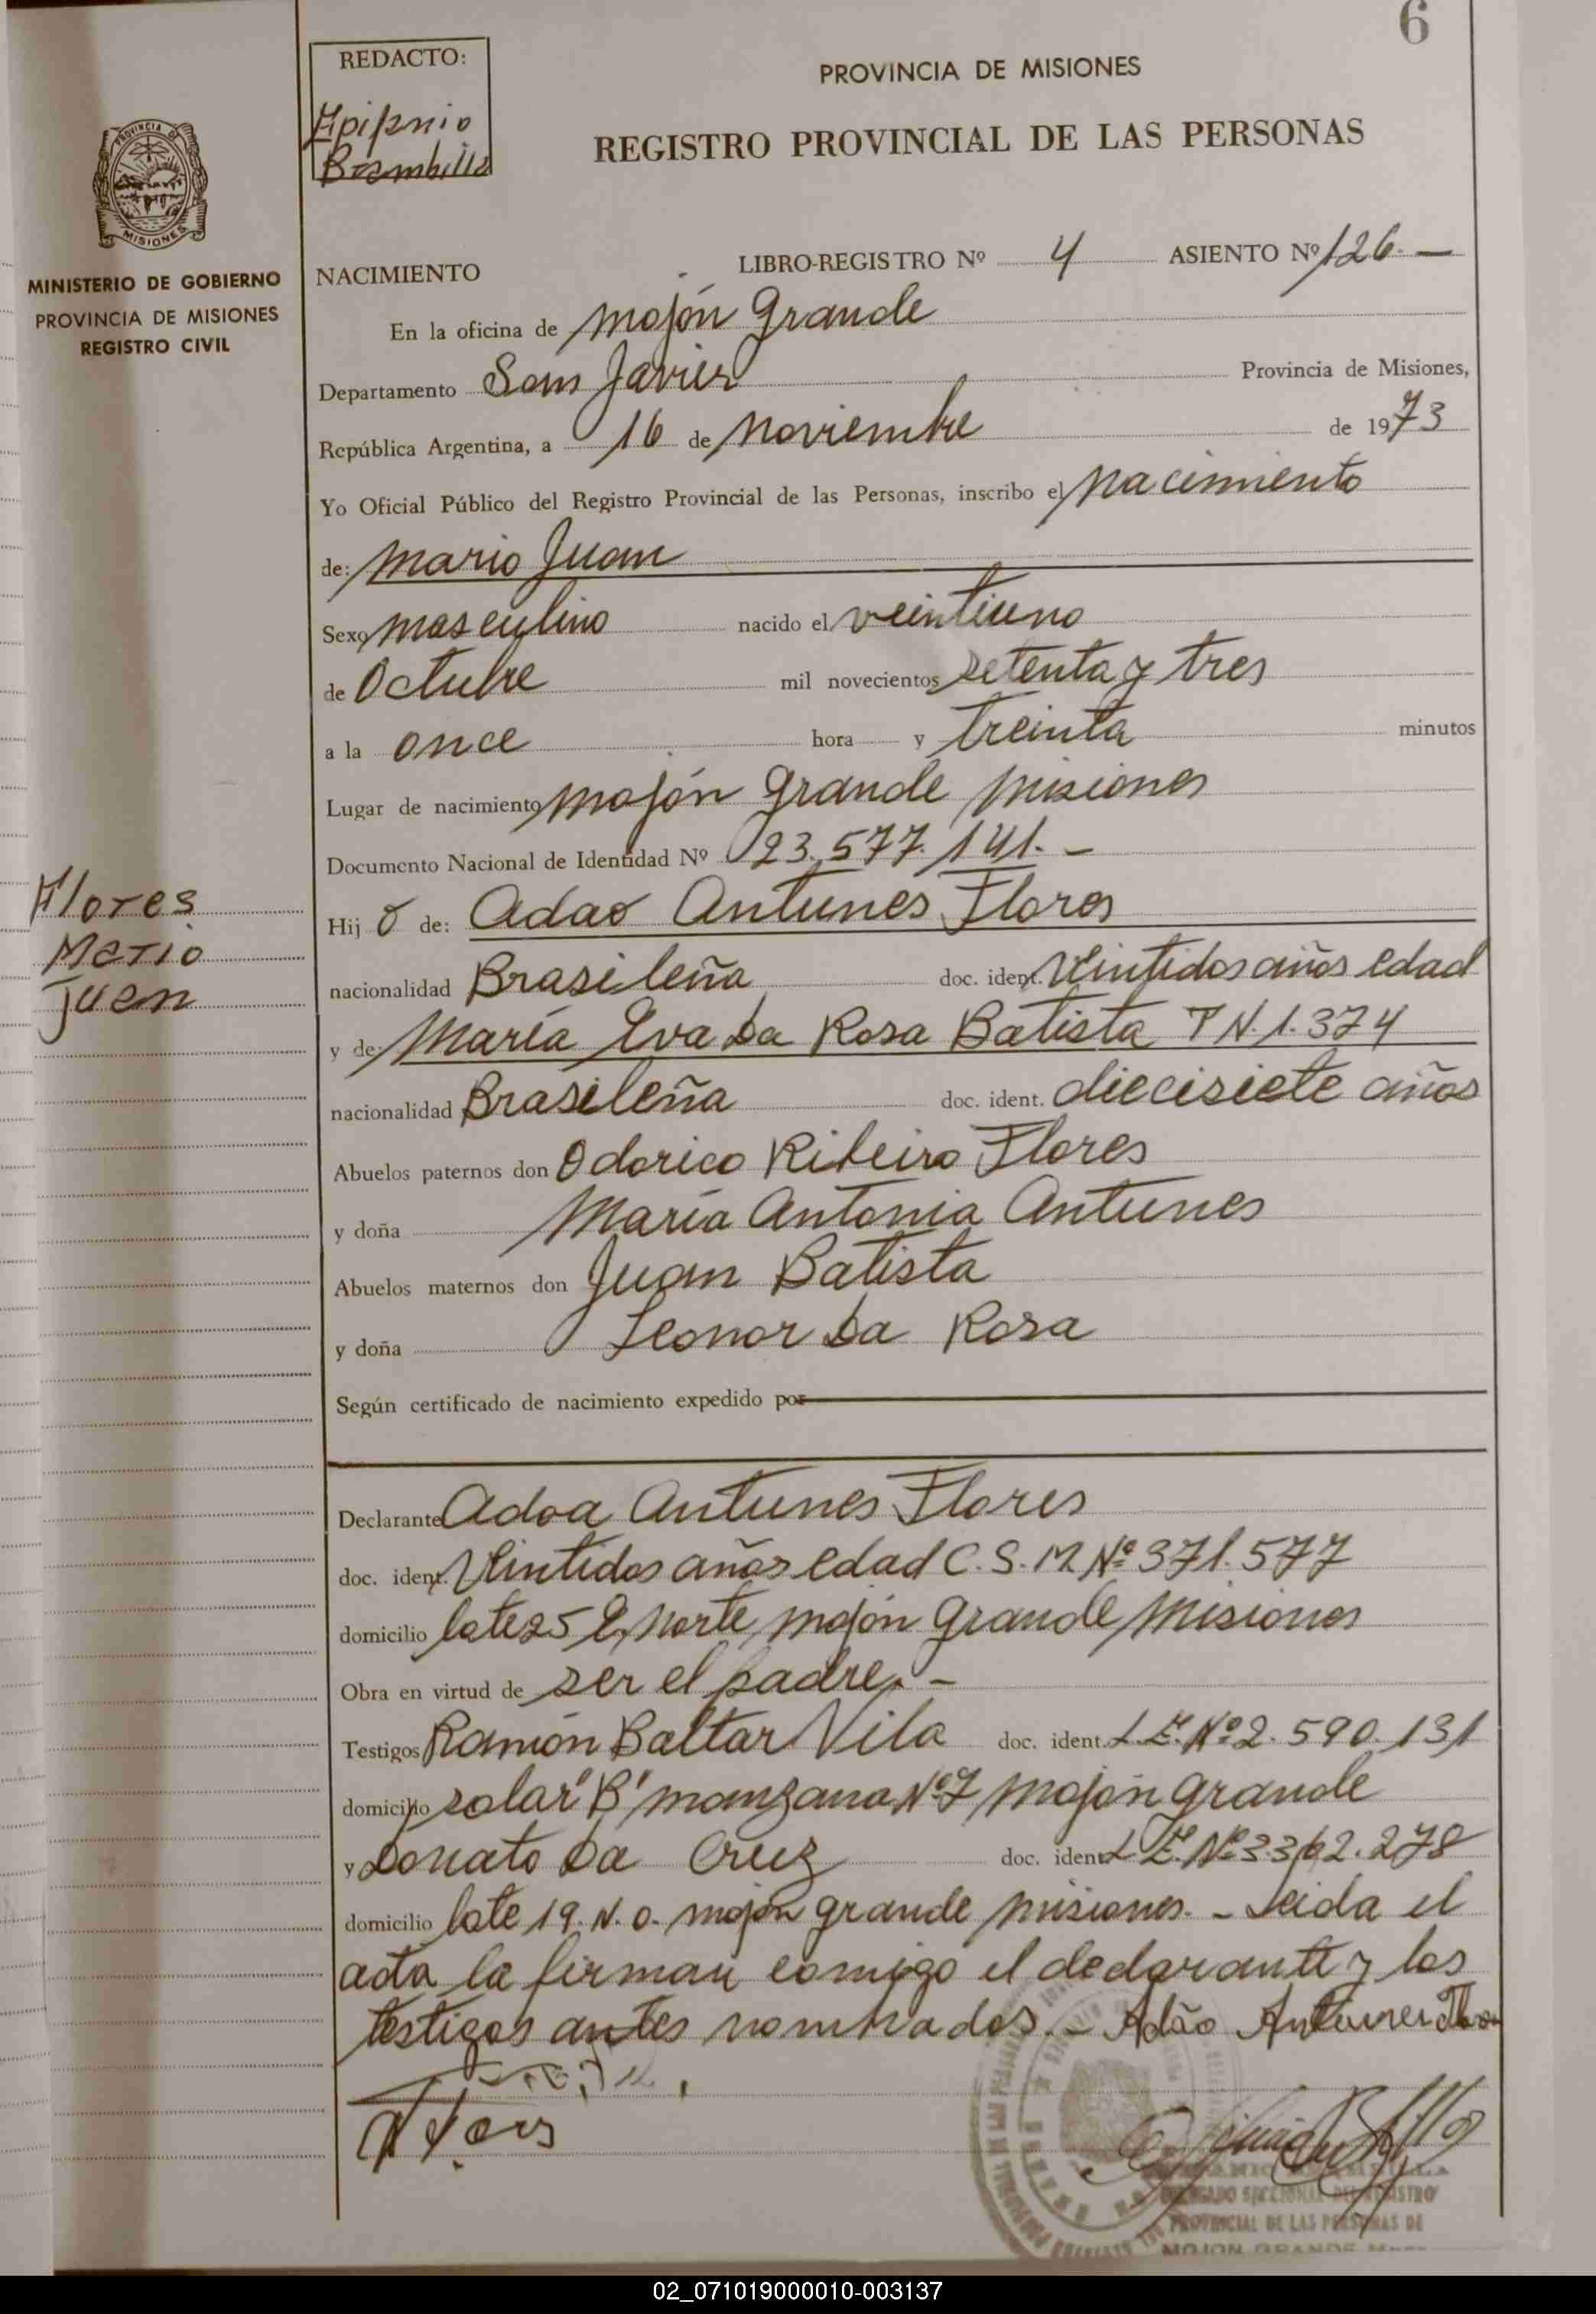 6
REDACTO:
Epifanio
Brambilla
PROVINCIA DE MISIONES
REGISTRO PROVINCIAL DE LAS PERSONAS
PROVINCIA DE
MISIONES
MINISTERIO DE GOBIERNO
PROVINCIA DE MISIONES
REGISTRO CIVIL
NACIMIENTO LIBRO-REGISTRO Nº 4 ASIENTO Nº 126.—
En la oficina de Mojón Grande
Departamento San Javier Provincia de Misiones,
República Argentina, a 16 de Noviembre de 1973
Yo Oficial Público del Registro Provincial de las Personas, inscribo el nacimiento
de: Mario Juan
Sexo masculino nacido el veintiuno
de Octubre mil novecientos setenta y tres
a la once hora y treinta minutos
Lugar de nacimiento Mojón Grande Misiones
Documento Nacional de Identidad Nº 23.577.141.—
Flores
Mario
Juan
Hij o de: Adao Antunes Flores
nacionalidad Brasileña doc. ident. Veintidos años edad
y de María Eva Da Rosa Batista T N. 1.374
nacionalidad Brasileña doc. ident. diecisiete años
Abuelos paternos don Odorico Ribeiro Flores
y doña María Antonia Antunes
Abuelos maternos don Juan Batista
y doña Leonor Da Rosa
Según certificado de nacimiento expedido por
Declarante Adoa Antunes Flores
doc. ident. Veintidos años edad C.S.M. Nº 371.577
domicilio lote 25 L. Norte, Mojón Grande Misiones
Obra en virtud de ser el padre.—
Testigos Ramón Baltar Vila doc. ident. L.E. Nº 2.590.131
domicilio solar "B" manzana Nº 7 Mojón Grande
y Donato Da Cruz doc. ident. L.E. Nº 3.362.278
domicilio lote 19. N.O. Mojón Grande Misiones.— Leida el
acta la firman comigo el declarante y los
testigos antes nombrados.— Adão Antunes Flores
PROVINCIAL DE LAS PERSONAS DE
MOJON GRANDE
02_071019000010-003137